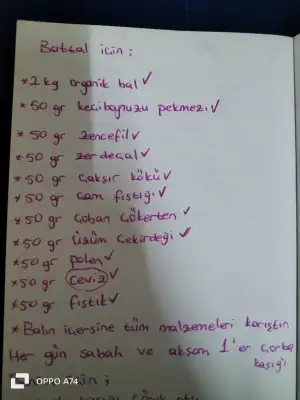 Battal için ;
* 1 kg organik bal ✓
* 50 gr keçiboynuzu pekmezi ✓
* 50 gr zencefil ✓
* 50 gr zerdeçal ✓
* 50 gr çakşır kökü ✓
* 50 gr çam fıstığı ✓
* 50 gr çoban çökerten ✓
* 50 gr üzüm çekirdeği ✓
* 50 gr polen ✓
* 50 gr ceviz ✓
* 50 gr fıstık ✓
* Balın içersine tüm malzemeleri karıştırın
Her gün sabah ve akşam 1'er çorba
kaşığı
için ;
OPPO A74